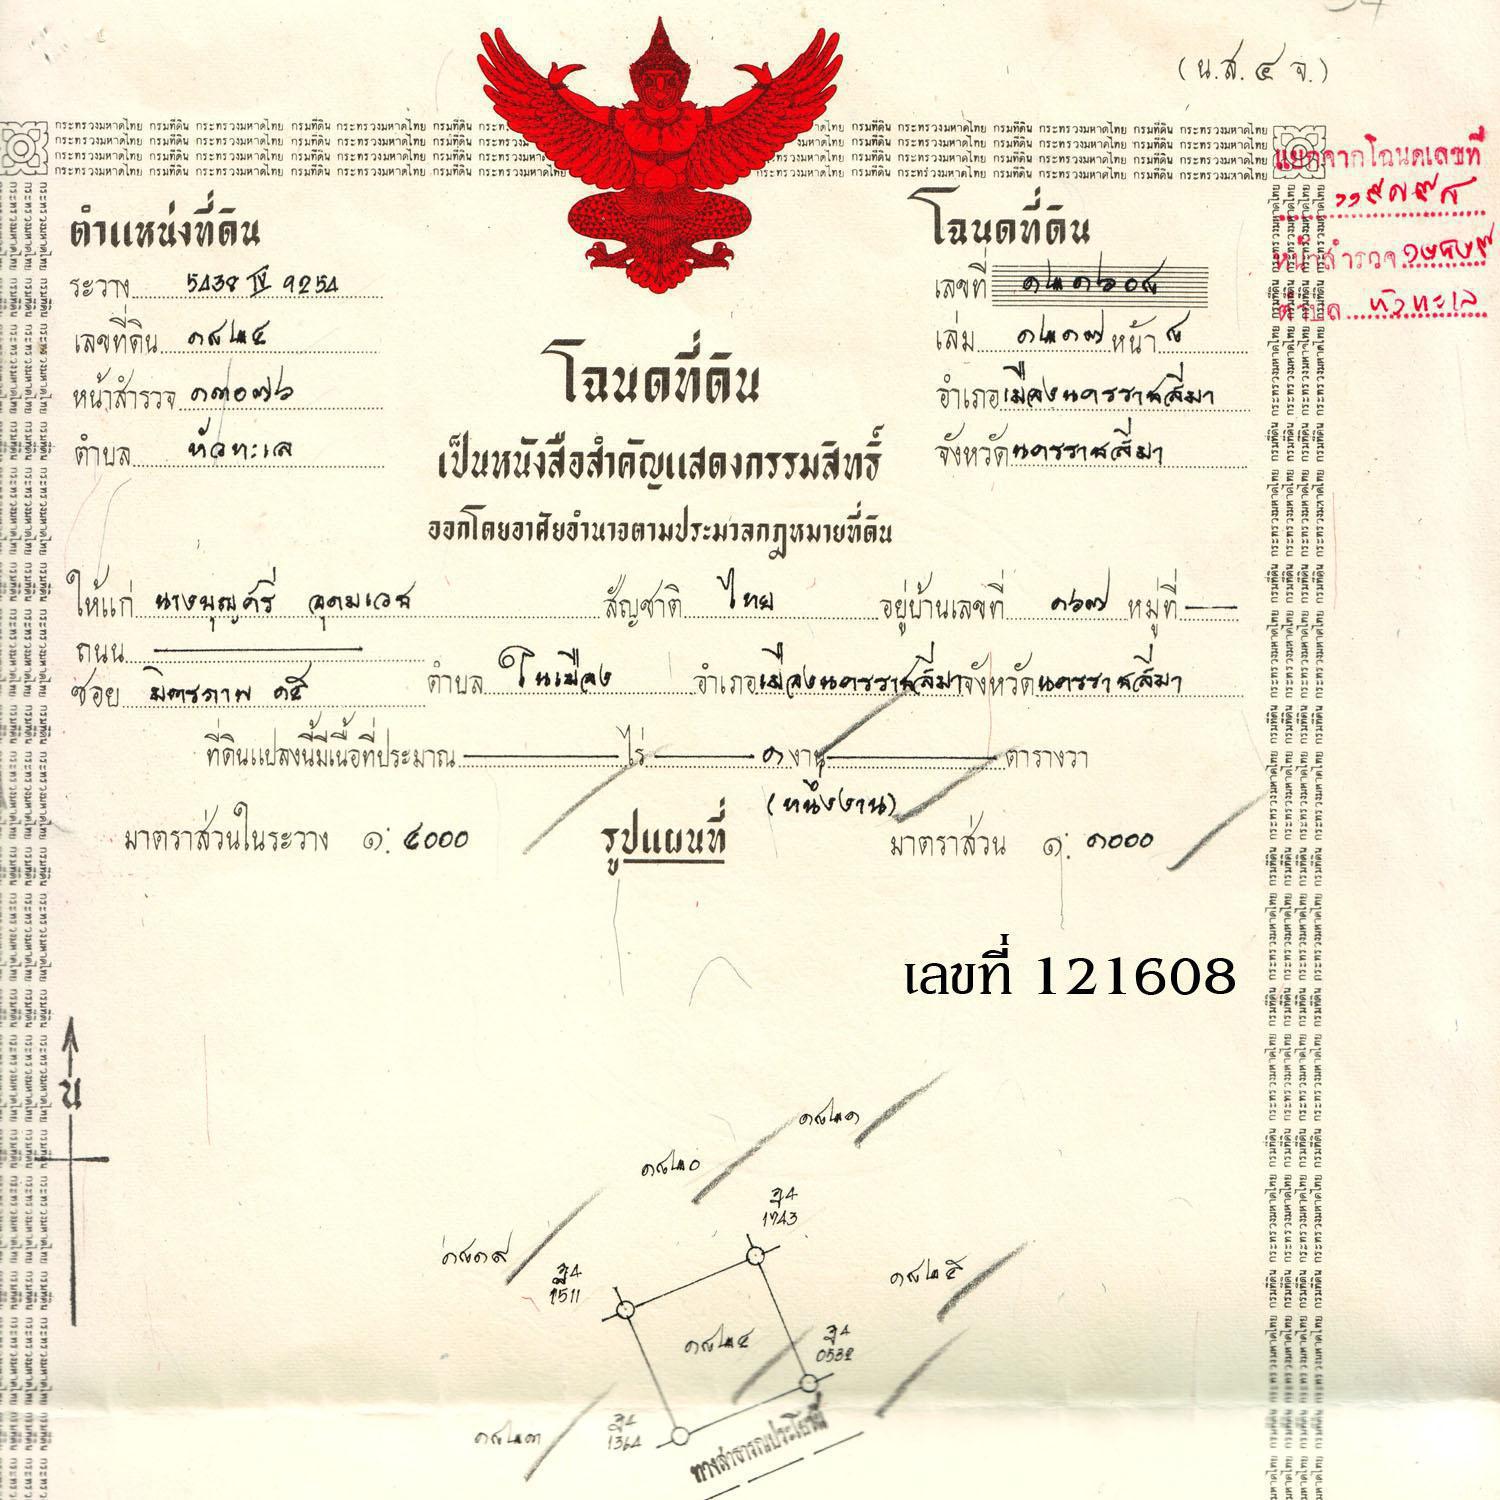 (น.ส. ๔ จ.)
กระทรวงมหาดไทย กรมที่ดิน
แยกจากโฉนดเลขที่
หน้าสำรวจ
ตำบล หัวทะเล
ตำแหน่งที่ดิน
ระวาง 5438 IV 9254
เลขที่ดิน ๑๘๒๔
หน้าสำรวจ ๑๓๐๗๖
ตำบล หัวทะเล
โฉนดที่ดิน
เลขที่ ๑๒๑๖๐๘
เล่ม ๑๒๑๗ หน้า ๘
อำเภอ เมืองนครราชสีมา
จังหวัด นครราชสีมา
โฉนดที่ดิน
เป็นหนังสือสำคัญแสดงกรรมสิทธิ์
ออกโดยอาศัยอำนาจตามประมวลกฎหมายที่ดิน
ให้แก่ นางบุญศรี อุดมเวช สัญชาติ ไทย อยู่บ้านเลขที่ ๑๖๗ หมู่ที่ —
ถนน —
ซอย มิตรภาพ ๑๕ ตำบล ในเมือง อำเภอ เมืองนครราชสีมา จังหวัด นครราชสีมา
ที่ดินแปลงนี้มีเนื้อที่ประมาณ — ไร่ — ๑ งาน — ตารางวา
(หนึ่งงาน)
มาตราส่วนในระวาง ๑:๔๐๐๐ รูปแผนที่ มาตราส่วน ๑:๑๐๐๐
เลขที่ 121608
น
๑๘๒๑
๑๘๒๐
1743
๑๘๑๙
1511
๑๘๒๕
๑๘๒๔
0532
๑๘๒๓
1364
ทางสาธารณประโยชน์